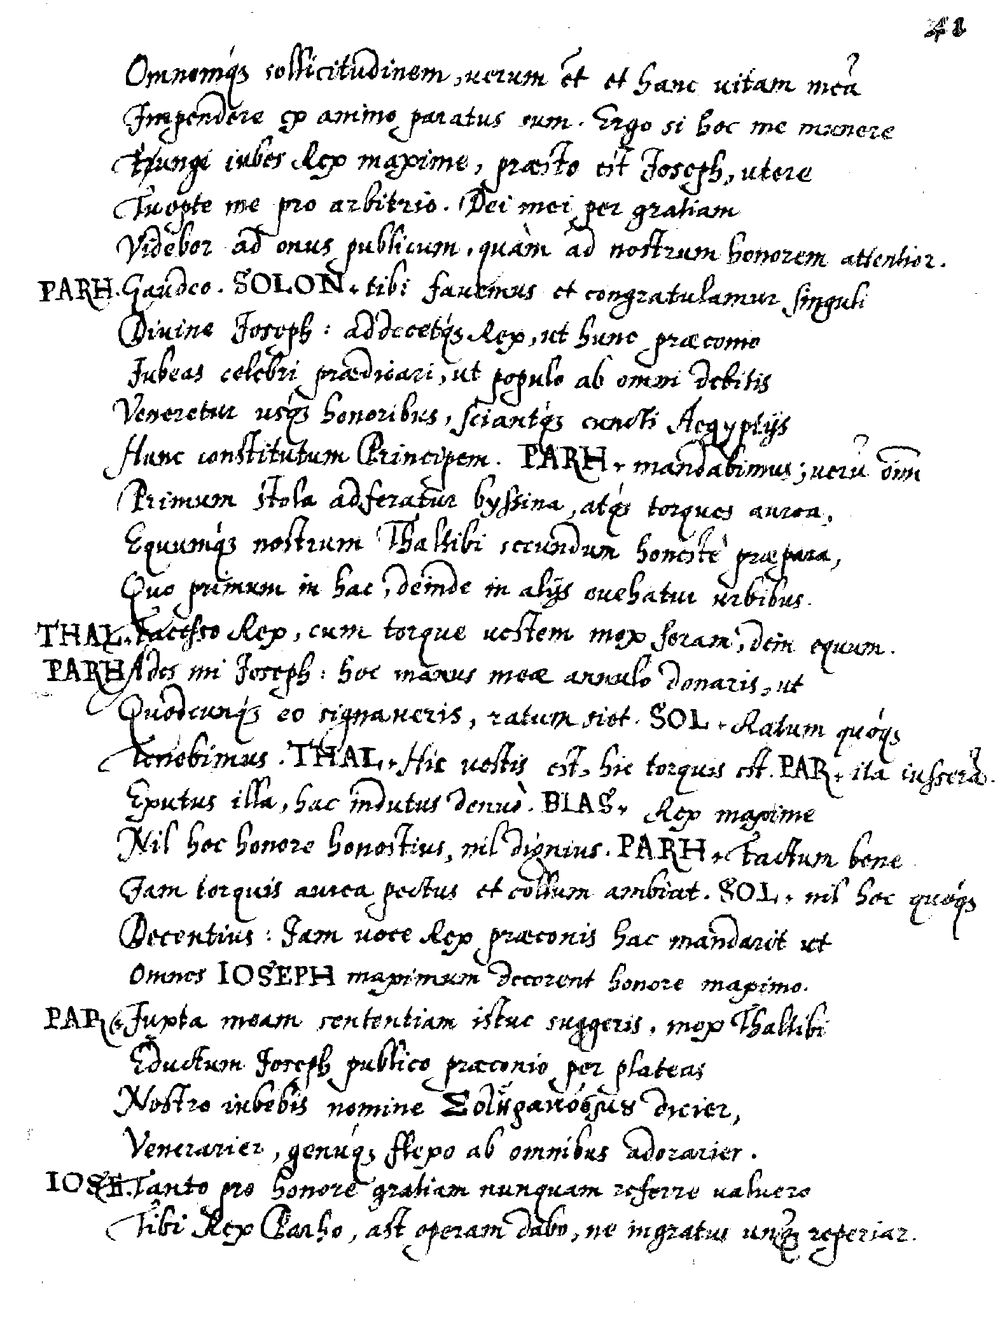 41
Omnemq́ꝫ sollicitudinem, uerum ēt et hanc uitam meā
Impendere ex animo paratus sum. Ergo si hoc me munere
fungi iubes Rex maxime, præsto est Joseph, utere
Tuopte me pro arbitrio. Dei mei per gratiam
Videbor ad onus publicum, quàm ad nostrum honorem attentior.
PARH. Gaudeo. SOLON. tibi fauemus et congratulamur singuli
Diuine Joseph: addecetq́ꝫ Rex, ut hunc præcone
Jubeas celebri prædicari, ut populo ab omni debitis
Veneretur usq́ꝫ honoribus, sciantq́ꝫ cuncti Aegyptijs
Hunc constitutum Principem. PARH. mandabimus; uerū oīm
Primum stola adferatur byssina, atq́ꝫ torques aurea,
Equumq́ꝫ nostrum Thaltibi secundum honestè præpara,
Quo primum in hac, deinde in alijs euehatur urbibus.
THAL. Facesso Rex, cum torque uestem mox feram, dein equum.
PARH Ades mi Joseph: hoc manus meæ annulo donaris, ut
Quodcunq́ꝫ eo signaueris, ratum siet. SOL. Ratum quoq́ꝫ
Tenebimus. THAL. Hic uestis est, hic torquis est. PAR. ita iusserā.
Exutus illa, hac indutus denuò. BIAS. Rex maxime
Nil hoc honore honestius, nil dignius. PARH. Factum bene
Jam torquis aurea pectus et collum ambiat. SOL. nil hoc quoq́ꝫ
Decentius: Jam uoce Rex præconis hac mandarit ut
Omnes IOSEPH maximum decorent honore maximo.
PAR. Juxta meam sententiam istuc suggeris, mox Thaltibi
Eductum Joseph publico præconio per plateas
Nostro iubebis nomine dicier,
Venerarier, genuq́ꝫ flexo ab omnibus adorarier.
IOSE. Tanto pro honore gratiam nunquam referre ualuero
Tibi Rex Parho, ast operam dabo, ne ingratus unq̄ reperiar.